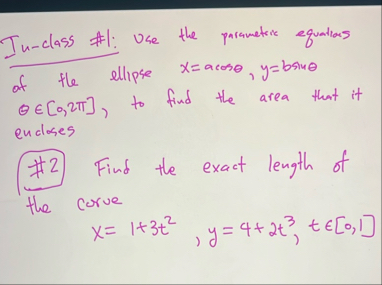 In-class #1: Use the parametric equations
of the ellipse x=acosθ, y=bsinθ
θ∈[0,2π], to find the area that it
encloses
#2 Find the exact length of
the curve
x= 1+3t², y=4+2t³, t∈[0,1]